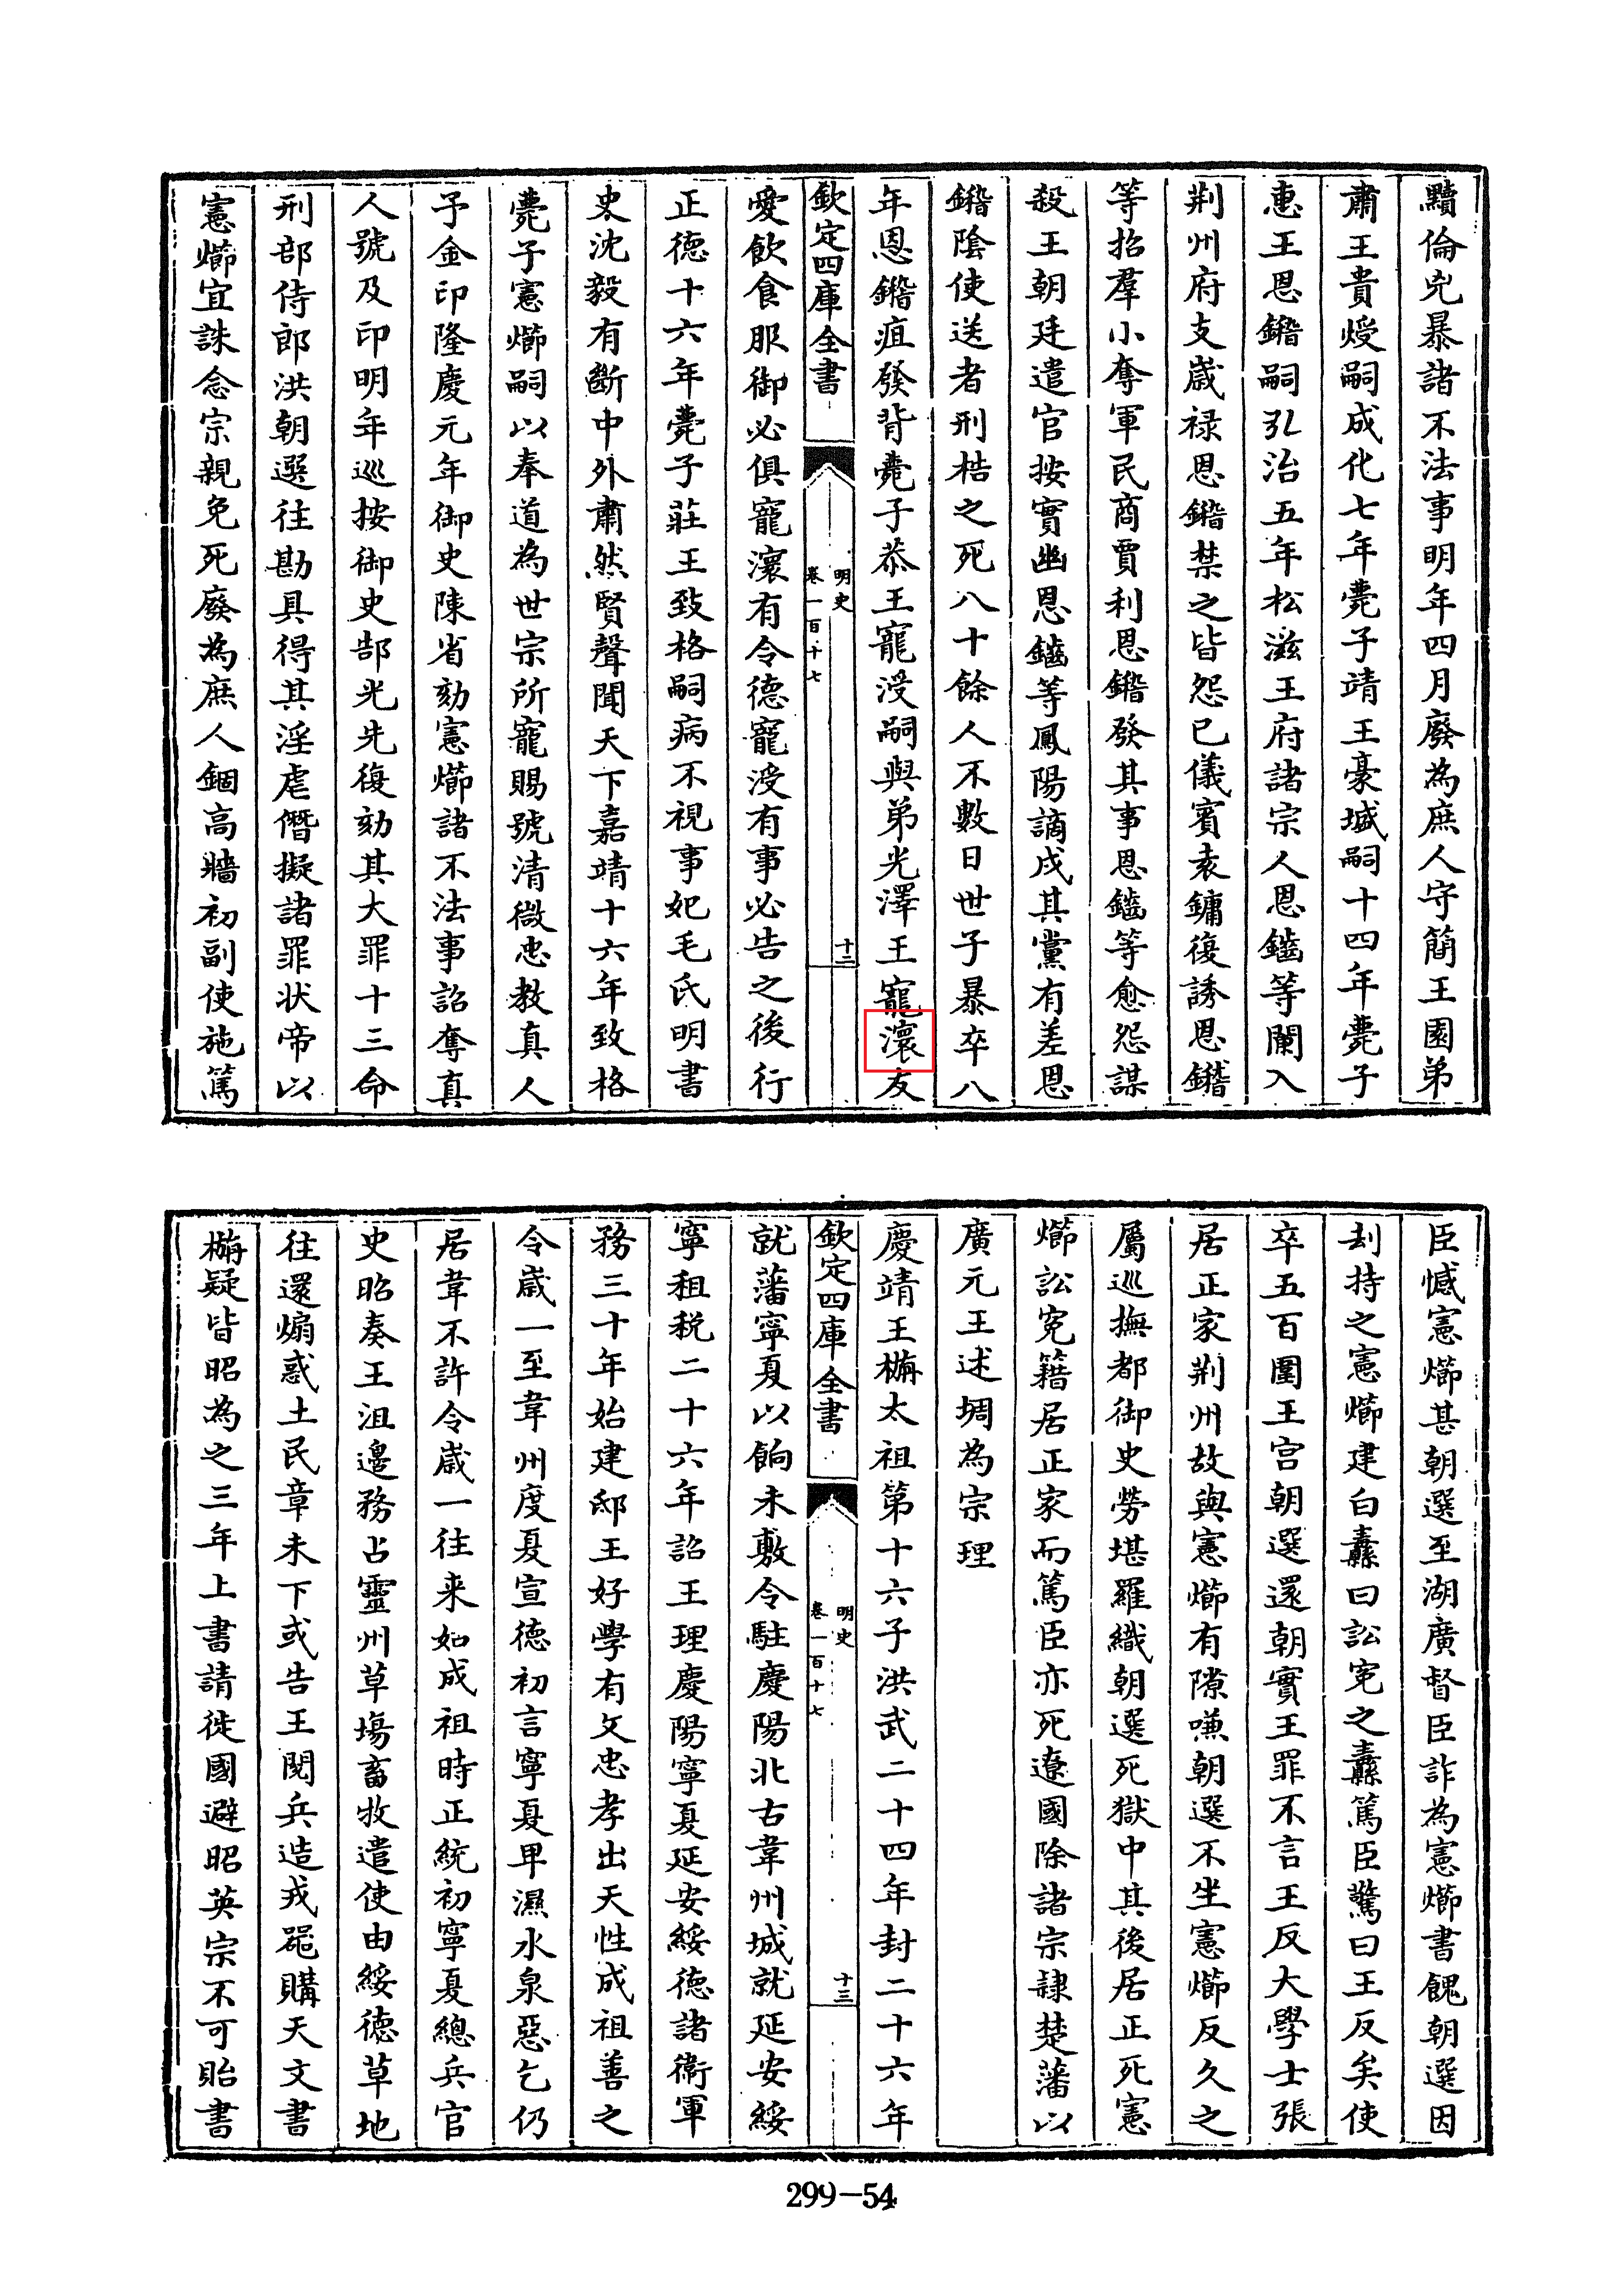 黷倫兇暴諸不法事明年四月廢為庶人守簡王園弟
肅王貴㷞嗣成化七年薨子靖王豪墭嗣十四年薨子
惠王恩鍸嗣弘治五年松滋王府諸宗人恩鑡等闌入
荆州府支歲禄恩鍸禁之皆怨已儀賓袁鏞復誘恩鍸
等招羣小奪軍民商賈利恩鍸發其事恩鑡等愈怨謀
殺王朝廷遣官按實幽恩鑡等鳳陽謫戍其黨有差恩
鍸陰使送者刑梏之死八十餘人不數日世子暴卒八
年恩鍸疽發背薨子恭王寵涭嗣與弟光澤王寵瀤友
欽定四庫全書
明史
卷一百十七
十二
愛飲食服御必俱寵瀤有令德寵涭有事必告之後行
正德十六年薨子莊王致格嗣病不視事妃毛氏明書
史沈毅有斷中外肅然賢聲聞天下嘉靖十六年致格
薨子憲㸅嗣以奉道為世宗所寵賜號清微忠教真人
予金印隆慶元年御史陳省劾憲㸅諸不法事詔奪真
人號及印明年巡按御史郜光先復劾其大罪十三命
刑部侍郎洪朝選往勘具得其淫虐僭擬諸罪状帝以
憲㸅宜誅念宗親免死廢為庶人錮高牆初副使施篤
臣憾憲㸅甚朝選至湖廣督臣詐為憲㸅書餽朝選因
刦持之憲㸅建白纛曰訟寃之纛篤臣驚曰王反矣使
卒五百圍王宫朝選還朝實王罪不言王反大學士張
居正家荆州故與憲㸅有隙嗛朝選不坐憲㸅反久之
屬巡撫都御史勞堪羅織朝選死獄中其後居正死憲
㸅訟寃籍居正家而篤臣亦死遼國除諸宗隷楚藩以
廣元王述㘐為宗理
慶靖王㮵太祖第十六子洪武二十四年封二十六年
欽定四庫全書
明史
卷一百十七
十三
就藩寧夏以餉未敷令駐慶陽北古韋州城就延安綏
寧租税二十六年詔王理慶陽寧夏延安綏德諸衛軍
務三十年始建邸王好學有文忠孝出天性成祖善之
令歲一至韋州度夏宣德初言寧夏卑濕水泉惡乞仍
居韋不許令歲一往来如成祖時正統初寧夏總兵官
史昭奏王沮邊務占靈州草塲畜牧遣使由綏德草地
往還煽惑土民章未下或告王閱兵造戎噐購天文書
㮵疑皆昭為之三年上書請徙國避昭英宗不可貽書
299-54